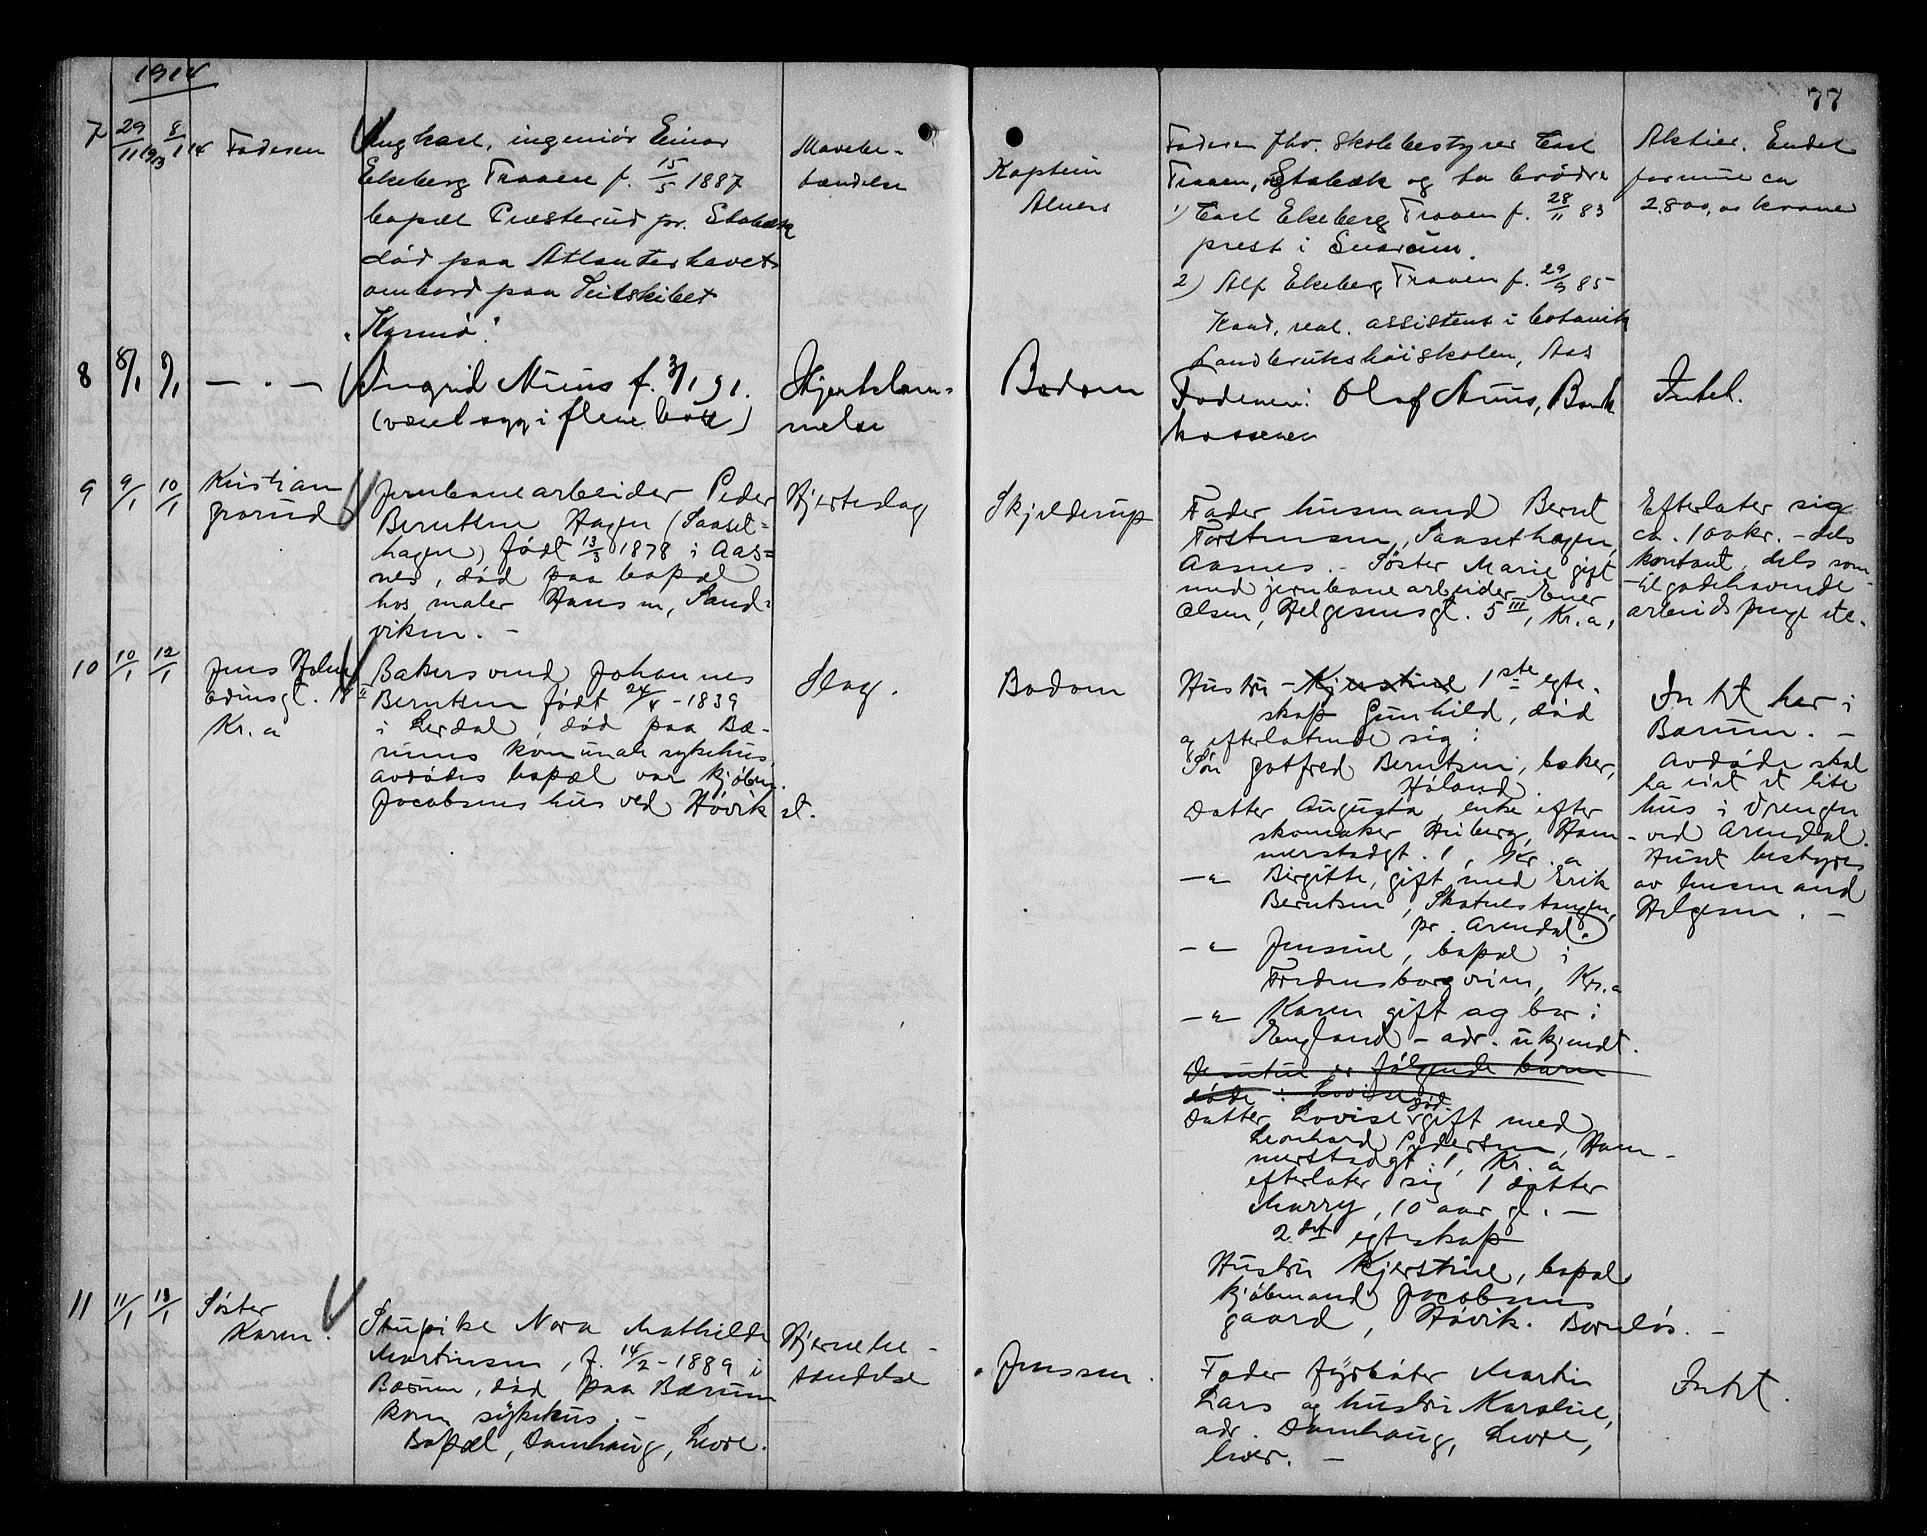 1914
77
7 29/11 1913 8/1 14 Faderen
Ungkarl, ingeniör Einar
Ekeberg Traaen f. 15/5 1887
bopæl Presterud pr. Stabæk
död paa Atlanterhavet
ombord paa Seilskibet
"Karmö".
Mavebe-
tændelse
Kaptein
Alvers
Faderen fhv. Skolebestyrer Carl
Traaen, Stabæk og to brödre
1) Carl Ekeberg Traaen f. 28/11 83
prest i Snarum.
2) Alf Ekeberg Traaen f. 29/9 85
Kand. real. assistent i botanik
Landbrukshöiskolen, Aas
Aktier. Endel
formue ca
2.800,00 kroner
8 8/1 9/1 — " —
Ingrid Muus f. 3/1 91.
(været syg i flere            )
Hjertelam-
melse
Bodom
Faderen: Olaf Muus, Bank
kasserer
Intet.
9 9/1 10/1 Kristian
Grorud
Jernbanearbeider Peder
Berntsen Hagen (Saaset-
hagen) född 13/3 1878 i Aas-
nes, död paa bopæl
hos maler Hansen, Sand-
viken. –
Hjerteslag
Skjelderup
Fader husmand Bernt
Torstensen, Saasethagen,
Aasnes. – Söster Marie gift
med jernbanearbeider Ener
Olsen, Helgesensgt. 5 III, Kr.a,
Efterlater sig
ca. 100 kr. – dels
kontant, dels som
tilgodehavende
arbeidspenge etc.
10 10/1 12/1 Jens Holm
Odinsgt. 18 II
Kr.a
Bakersvend Johannes
Berntsen födt 24/4 – 1839
i Lerdal, död paa Bæ-
rums komunale sykehus,
avdödes bopæl var kjöbm.
Jacobsens hus ved Hövik st.
Slag.
Bodom
Hustru – Kjerstine 1ste egte-
skap Gunhild, död
og efterlatende sig:
Sön Gotfred Berntsen, baker,
Höland.
Datter Augusta enke efter
skomaker Huberg, Ham-
merstadgt. 1, Kr.a
—"— Birgitte, gift med Erik
Berntsen, Skatnestangen,
pr. Arendal.
—"— Jensine, bopæl i
Fredensborgveien, Kr.a
—"— Karen gift og bor i
England – adr. ukjendt.
Desuten er fölgende barn
döde: Lovise
död
Datter Lovise gift med
Leonhard Pedersen, Ham-
merstadgt. 1, Kr.a
efterlater sig 1 datter
Marry, 10 aar gl. –
2det egteskap
Hustru Kjerstine, bopæl
kjöbmand Jacobsens
gaard, Hövik. Barnlös. –
Intet her i
Bærum. –
Avdöde skal
ha eiet et lite
hus i Vrengen
ved Arendal.
Huset bestyres
av husmand
Helgesen. –
11 11/1 13/1 Söster
Karen.
Strupike Nora Mathilde
Martinsen, f. 14/2 – 1889 i
Bærum, död paa Bærum
kom sykehus. –
Bopæl, Damhaug, Lvore.
Hjernebe-
tændelse
Jenssen.
Fader fyrböter Martin
Lars og hustru Karoline,
adr. Damhaug, Lvore,
lever. –
Intet.